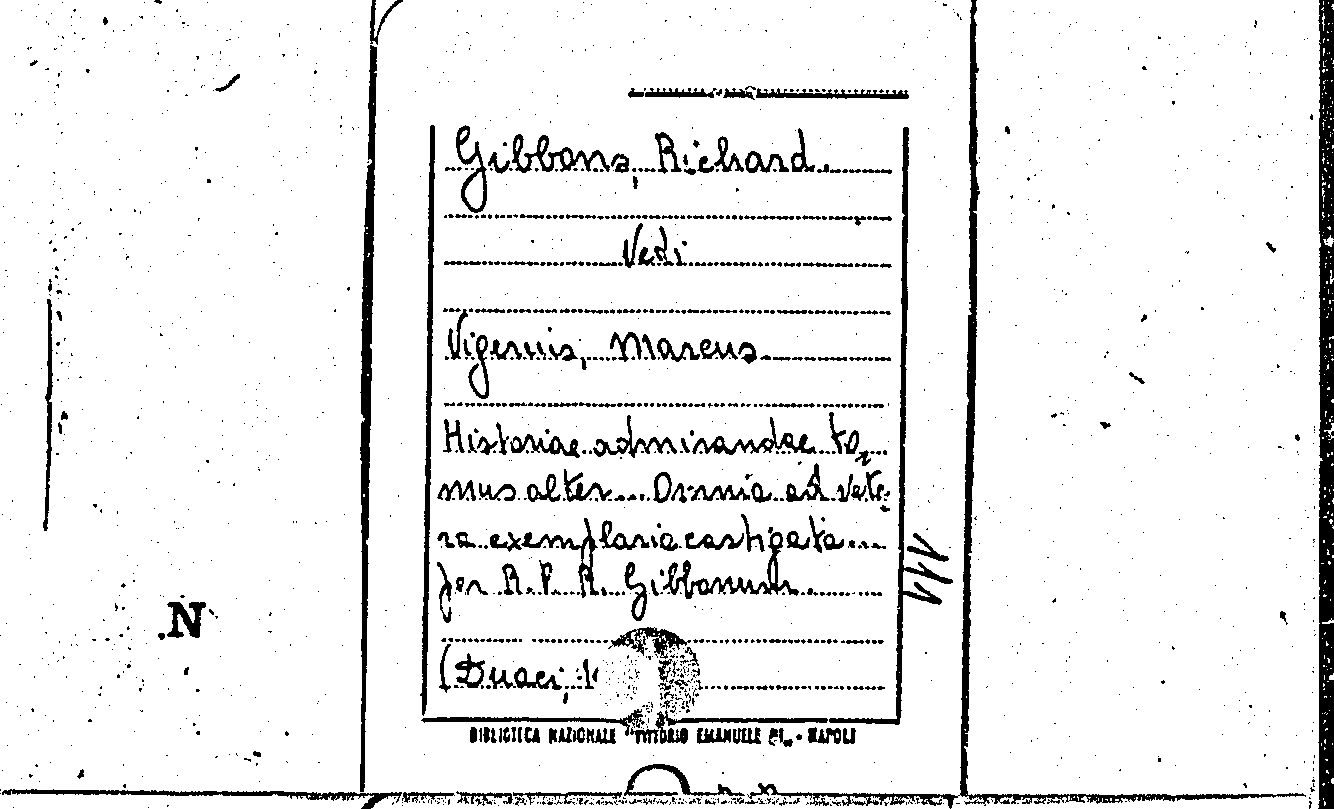 Gibbons, Richard.
Vedi
Vigerius, Marcus.
Historiae admirandae to=
mus alter... Omnia ad vete=
ra exemplaria castigata...
per R. P. R. Gibbonum.
(Duaci,
BIBLIOTECA NAZIONALE "VITTORIO EMANUELE III" - NAPOLI
111
.N